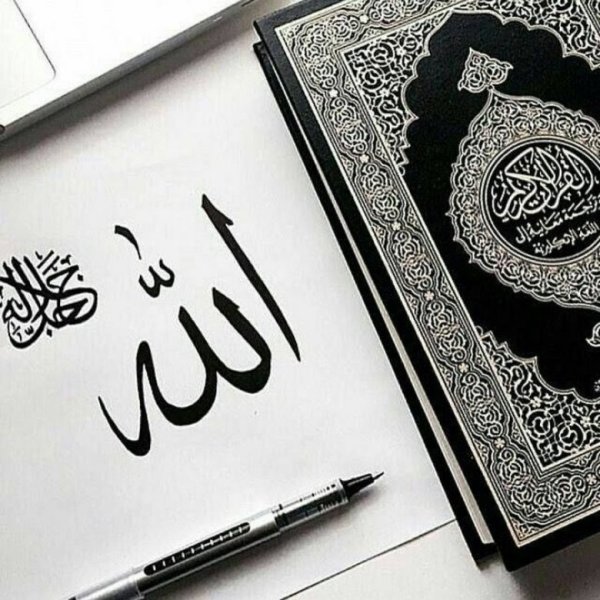 الله
جل جلاله
القرآن الكريم
وترجمة معانيه إلى
اللغة الإنكليزية